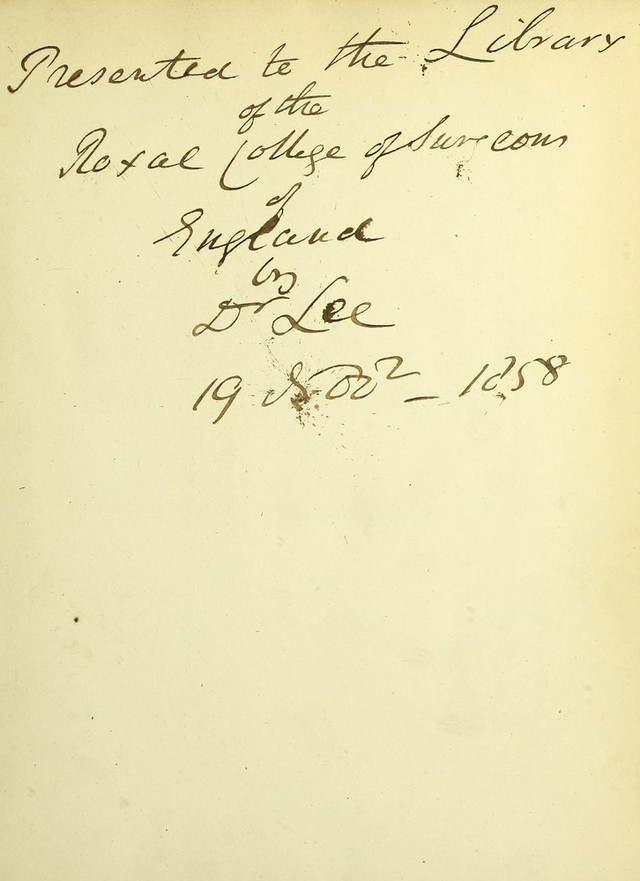 Presented to the Library
of the
Royal College of Surgeons
of
England
by
Dr Lee
19 Novr - 1858